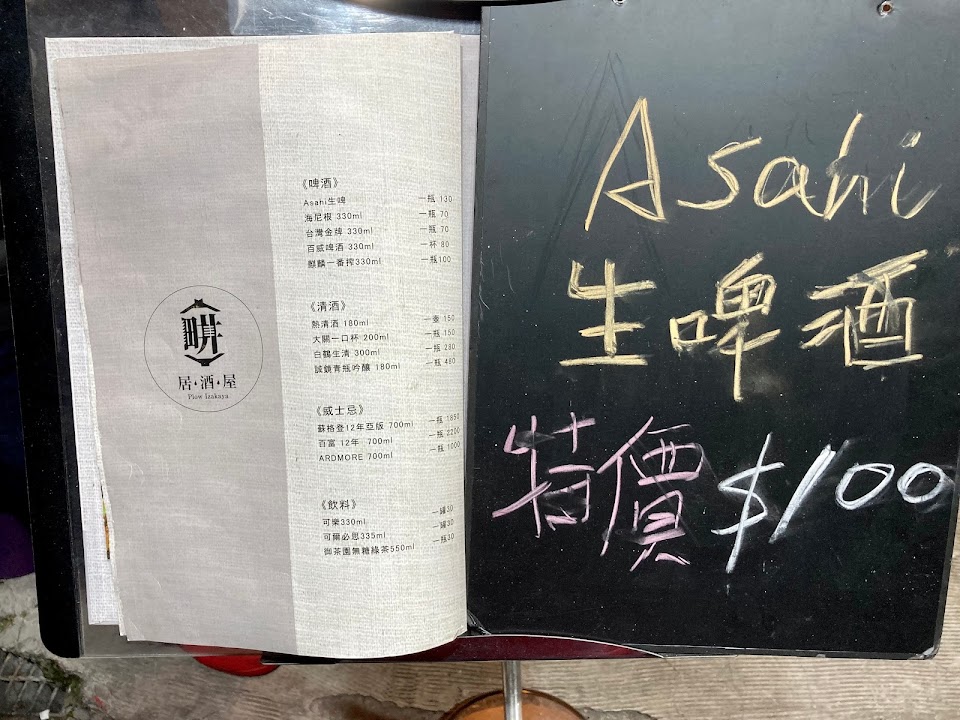 畊
居·酒·屋
Plow Izakaya
《啤酒》
Asahi生啤 一瓶 130
海尼根 330ml 一瓶 70
台灣金牌 330ml 一瓶 70
百威啤酒 330ml 一杯 80
麒麟一番搾330ml 一瓶100
《清酒》
熱清酒 180ml 一壺 150
大關一口杯 200ml 一瓶 150
白鶴生清 300ml 一瓶 280
誠鏡青瓶吟釀 180ml 一瓶 480
《威士忌》
蘇格登12年亞版 700ml 一瓶 1850
百富 12年 700ml 一瓶 2200
ARDMORE 700ml 一瓶 1000
《飲料》
可樂330ml 一罐30
可爾必思335ml 一罐30
御茶園無糖綠茶550ml 一瓶30
Asahi
生啤酒
特價$100